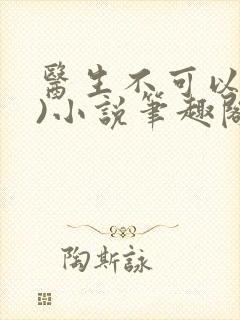 醫生不可以
)小説筆趣閣
陶斯詠